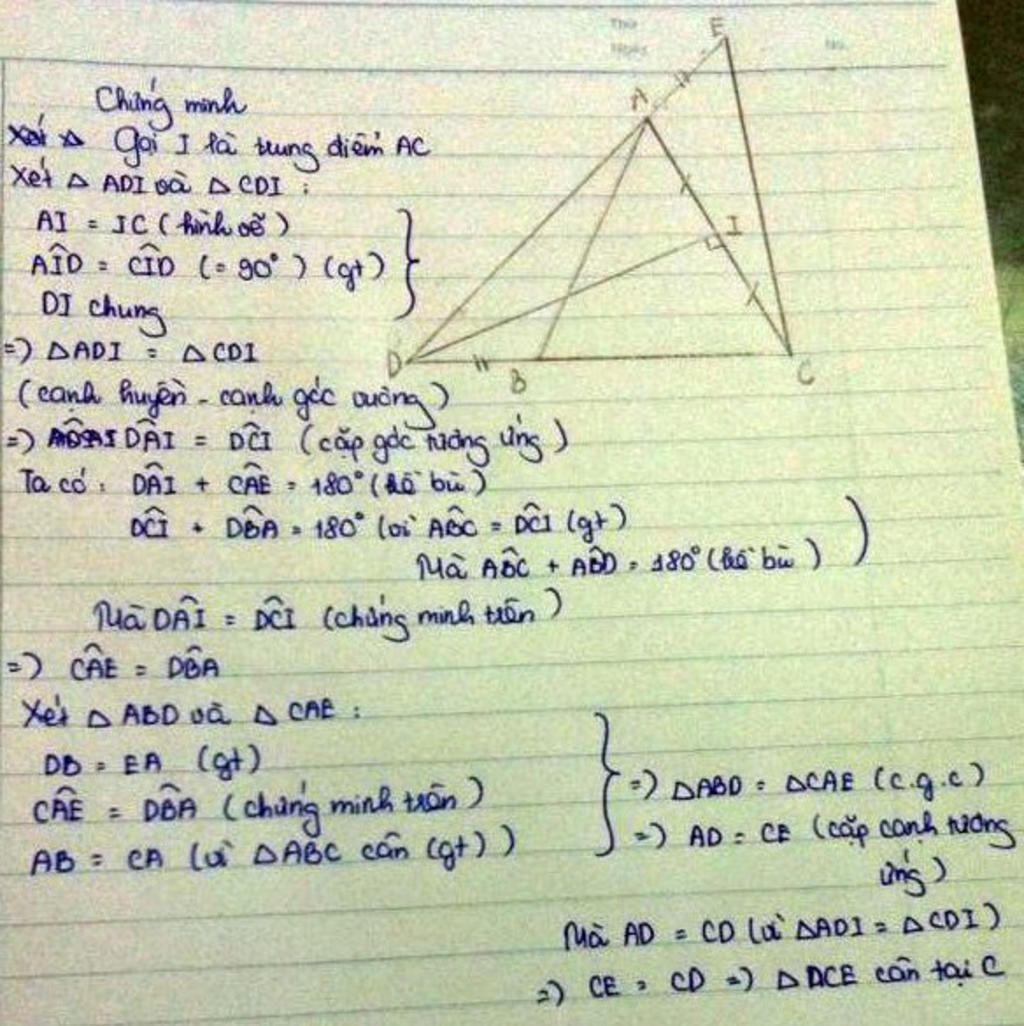 Thứ
Ngày
No.
E
A
I
D
B
C
Chứng minh
Gọi I là trung điểm AC
Xét Δ ADI và Δ CDI :
AI = IC ( hình vẽ )
AÎD = CÎD (= 90° ) (gt)
DI chung
=) ΔADI = ΔCDI
(cạnh huyền - cạnh góc vuông)
=) DÂI = DĈI (cặp góc tương ứng )
Ta có : DÂI + CÂE = 180° (kề bù )
DĈI + DB̂A = 180° (vì AB̂C = DĈI (gt)
Mà AB̂C + AB̂D = 180° (kề bù ) )
Mà DÂI = DĈI (chứng minh trên )
=) CÂE = DB̂A
Xét Δ ABD và Δ CAE :
DB = EA (gt)
CÂE = DB̂A (chứng minh trên )
AB = CA (vì ΔABC cân (gt) )
=) ΔABD = ΔCAE (c.g.c)
=) AD = CE (cặp cạnh tương
ứng )
Mà AD = CD (vì ΔADI = ΔCDI )
=) CE = CD =) Δ DCE cân tại C